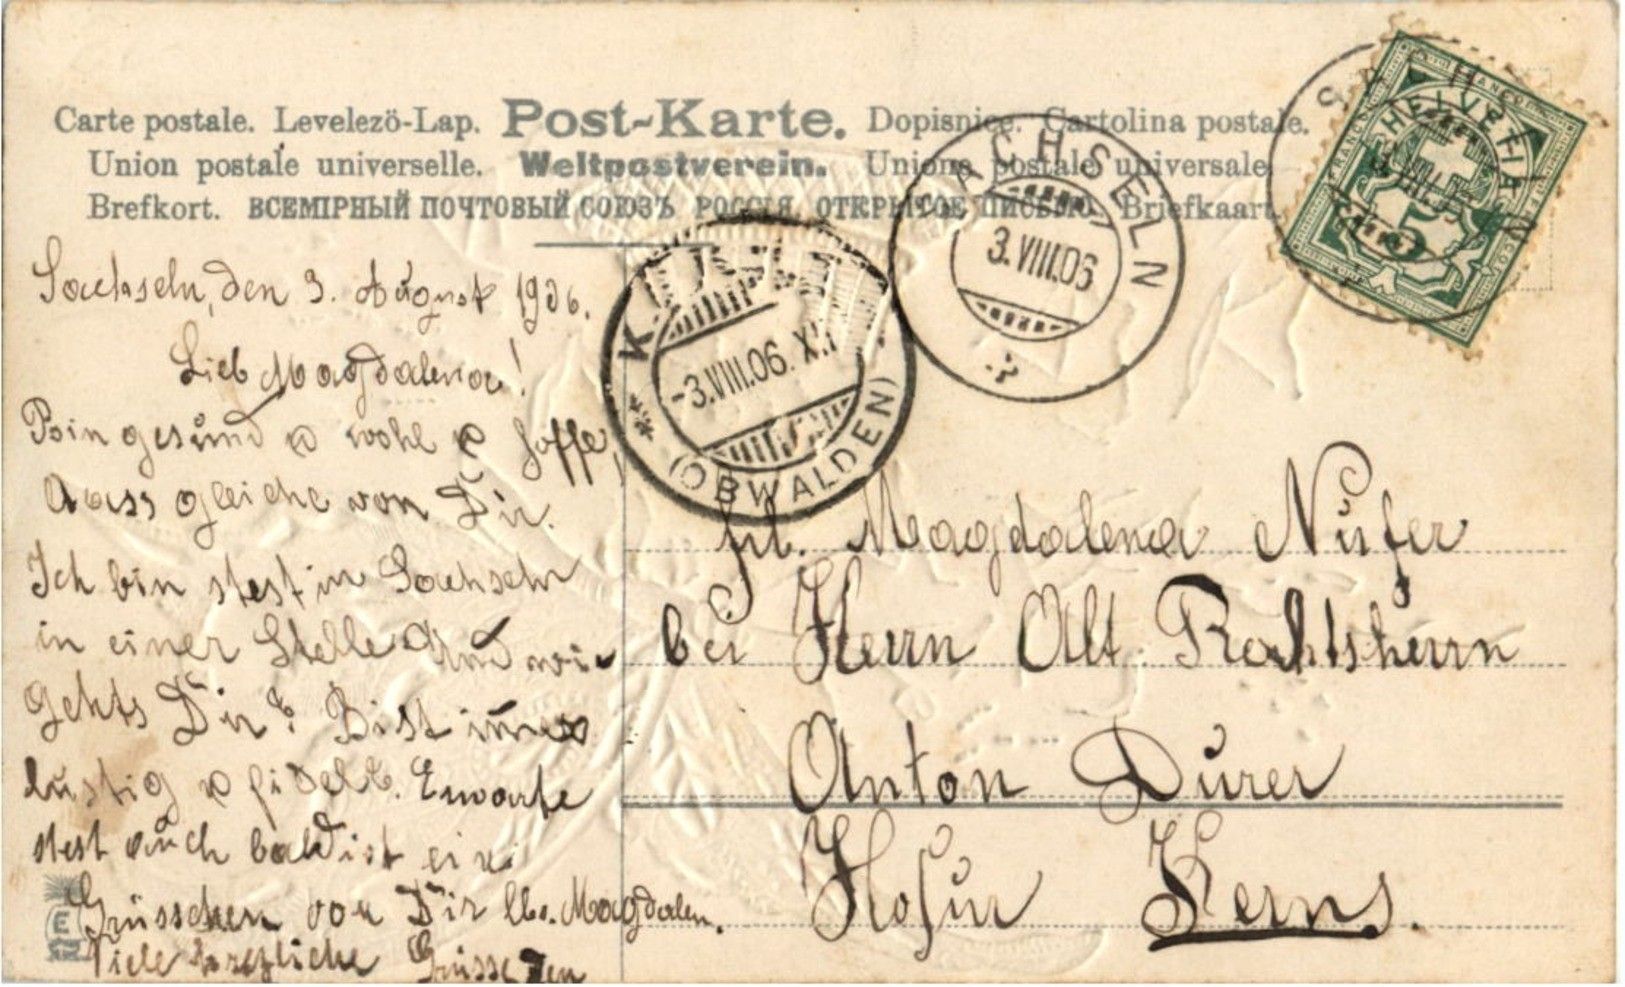 Carte postale. Levelezö-Lap. Post-Karte. Dopisnice. Cartolina postale.
Union postale universelle. Weltpostverein. Unione postale universale.
Brefkort. ВСЕМІРНЫЙ ПОЧТОВЫЙ СОЮЗЪ РОССІЯ ОТКРЫТОЕ ПИСЬМО. Briefkaart.
HELVETIA
FRANCO
5
SACHSELN
3.VIII.06
-3.VIII.06. XI
(OBWALDEN)
Sachseln, den 3. August 1906.
Lieb Magdalena!
Bin gesund u wohl u hoffe,
dass gleiche von Dir.
Ich bin stest in Sachseln
in einer Stelle Und wie
gehts Dir? Bist immer
lustig u fidel. Erwarte
stest auch baldist ein
Grüsschen von Dir lb. Magdalen.
Viele herzliche Grüsse
Frl. Magdalena Nufer
bei Herrn Alt. Rathsherrn
Anton Dürer
Hofur Kerns.
E